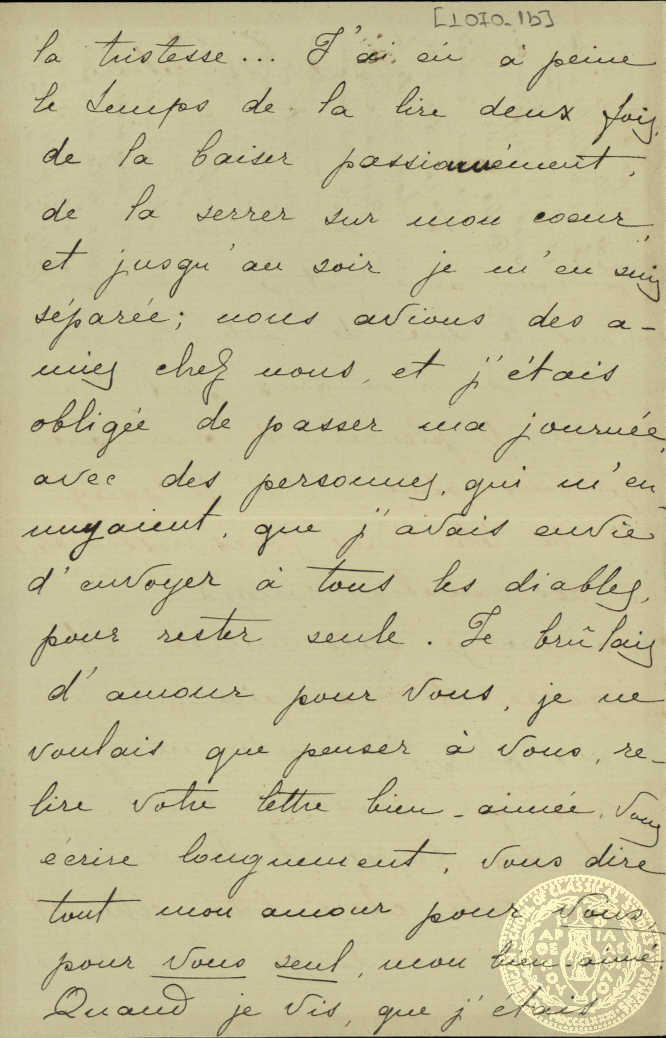 [1070-1b]
la tristesse... J'ai eu à peine
le temps de la lire deux fois,
de la baiser passionnément,
de la serrer sur mon coeur,
et jusqu'au soir je m'en suis
séparée; nous avions des a-
mies chez nous, et j'étais
obligée de passer ma journée,
avec des personnes, qui m'en-
nuyaient, que j'avais envie
d'envoyer à tous les diables,
pour rester seule. Je brûlais
d'amour pour vous, je ne
voulais que penser à vous, re-
lire votre lettre bien-aimée, vous
écrire longuement, vous dire
tout mon amour pour vous,
pour vous seul, mon bien-aimé.
Quand je vis, que j'étais